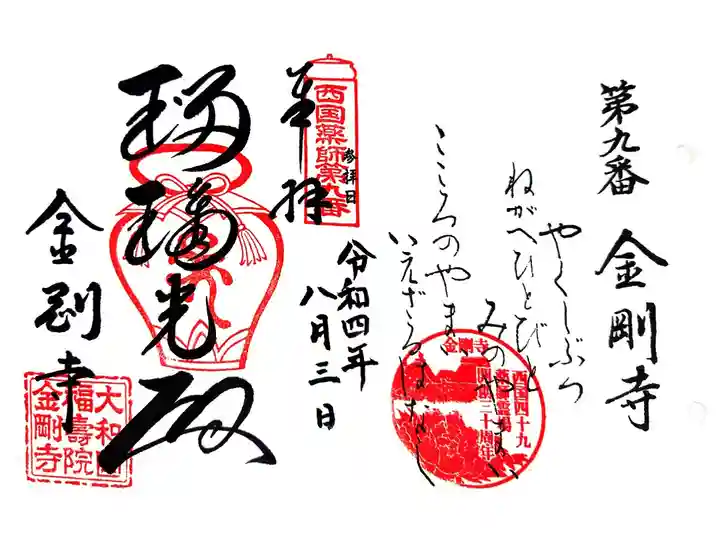 第九番
金剛寺
やくしぶつ
ねがへひとびと
みのやまい
こころのやまゝ
いえざるはなし
金剛寺
西国四十九
薬師霊場
開創三十周年
奉拝
西国薬師第九番
参拝日
令和四年
八月三日
瑠璃光殿
金剛寺
大和国
福壽院
金剛寺